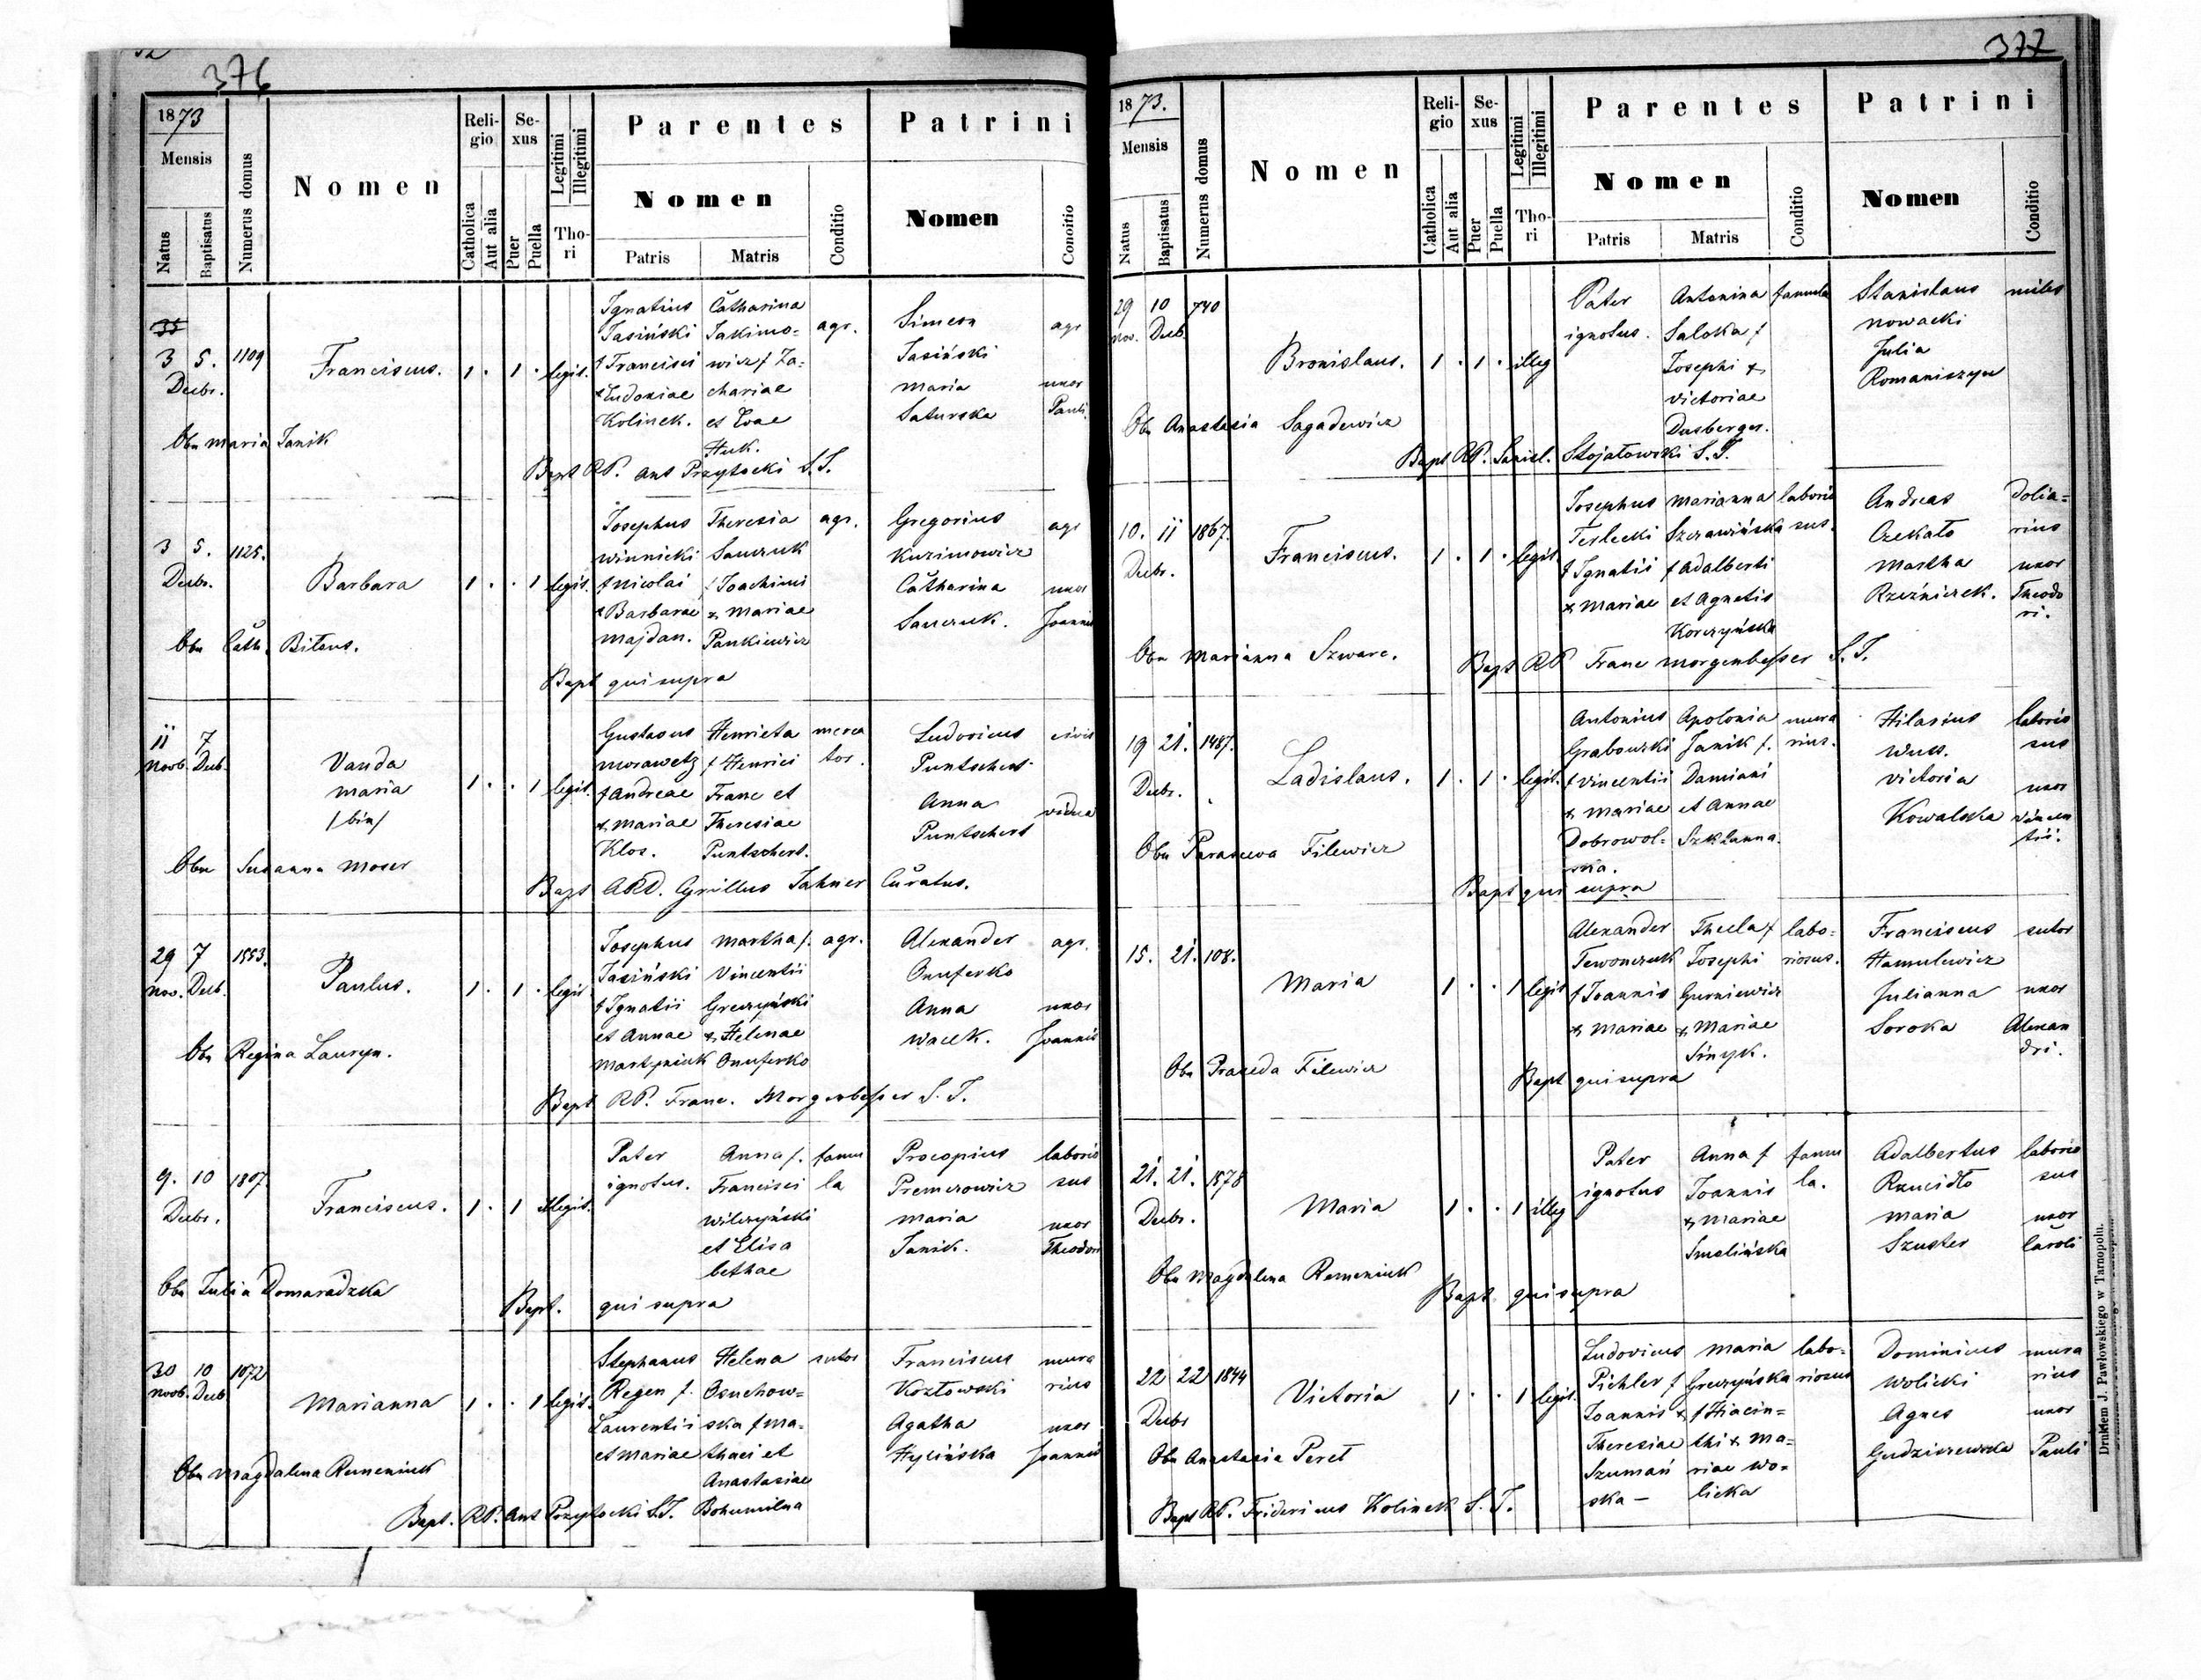 376
1873
Mensis
Natus
Baptisatus
Numerus domus
Nomen
Religio
Catholica
Aut alia
Sexus
Puer
Puella
Legitimi
Illegitimi
Thori
Parentes
Nomen
Patris
Matris
Conditio
Patrini
Nomen
Conditio
3 5. 1109 Franciscus. 1 . 1 . legit.
Decbr.
Ignatius Catharina
Jasiński Jakimo= agr.
f Francisci wicz f Za=
& Eudoxiae chariae
Kolinek. et Evae
Huk.
Simeon agr
Jasiński
Maria uxor
Saturska Pauli
Obs Maria Janik
Bapt RP. Ant Przytocki S.J.
3 5. 1125. Barbara 1 . . 1 legit.
Decbr.
Josephus Theresia agr.
Winnicki Sawczuk
f Nicolai f Joachimi
& Barbarae & Mariae
Majdan. Pankiewicz
Gregorius agr
Kuzimowicz
Catharina uxor
Sawczuk. Joannis
Obs Cath. Bitous.
Bapt qui supra
11 7 Vanda
Novb. Decb. Maria
/bin/ 1 . . 1 legit.
Gustavus Henrieta merca
Morawetz f Henrici tor.
f Andreae Franc et
& Mariae Theresiae
Klos. Puntschert.
Ludovicus civis
Puntschert
Anna vidua
Puntschert
Obs Susanna Moser
Bapt ARD. Cyrillus Jahner Curatus.
29 7 1553. Paulus. 1 . 1 . legit
Nov. Decb.
Josephus Martha f. agr.
Jasiński Vincentii
f Ignatii Greczyński
et Annae & Helenae
Martyniuk Onuferko
Alexander agr.
Onuferko
Anna uxor
Wacek. Joannis
Obs Regina Lauryn.
Bapt RP. Franc. Morgenbesser S.J.
9. 10 1807. Franciscus. 1 . 1 illegit.
Decbr.
Pater Anna f. famu
ignotus. Francisci la
Wilczyński
et Elisa
bethae
Procopius laborio
Premerowicz sus
Maria uxor
Janik. Theodori
Obs Julia Domaradzka
Bapt. qui supra
30 10 1072 Marianna 1 . . 1 legit.
Novb. Decb
Stephanus Helena sutor
Regen f. Osuchow=
Laurentii ska f Ma=
et Mariae thaei et
Anastasiae
Bohumilna
Franciscus mura
Kozłowski rius
Agatha uxor
Hycińska Joannis
Obs Magdalena Remeniuk
Bapt. RP. Ant Przytocki S.J.
377
1873.
Mensis
Natus
Baptisatus
Numerus domus
Nomen
Religio
Catholica
Aut alia
Sexus
Puer
Puella
Legitimi
Illegitimi
Thori
Parentes
Nomen
Patris
Matris
Conditio
Patrini
Nomen
Conditio
29 10 740 Bronislaus. 1 . 1 . illeg
Nov. Decb.
Pater Antonina famula
ignotus. Saloka f
Josephi &
Victoriae
Dasberger.
Stanislaus miles
Nowacki
Julia
Romaniszyn
Obs Anastasia Sagadewicz
Bapt RP. Stanisl. Stojałowski S.J.
10. 11 1867. Franciscus. 1 . 1 . legit.
Decbr.
Josephus Marianna laborio
Terlecki Szczawińska sus.
f Ignatii f Adalberti
& Mariae et Agnetis
Korczyńska
Andreas dolia=
Czekało rius
Martha uxor
Rzeźniczek. Theodo
ri.
Obs Marianna Szwarc.
Bapt RP Franc Morgenbesser S.J.
19 21. 1487. Ladislaus. 1 . 1 . legit.
Decbr.
Antonius Apolonia mura
Grabowski Janik f. rius.
f Vincentii Damiani
& Mariae et Annae
Dobrowol= Szklanna.
ska.
Hilarius laborio
Wuss. sus
Victoria uxor
Kowalska Vincen
tii.
Obs Parascewa Filewicz
Bapt qui supra
15. 21. 108. Maria 1 . . 1 legit
Alexander Thecla f labo=
Tewonczuk Josephi riosus.
f Joannis Gurniewicz
& Mariae & Mariae
Sinyk.
Franciscus sutor
Hamulewicz
Julianna uxor
Soroka Alexan
dri.
Obs Praxeda Filewicz
Bapt qui supra
21. 21. 1878 Maria 1 . . 1 illeg
Decbr.
Pater Anna f famu
ignotus Joannis la.
& Mariae
Smolińska
Adalbertus laborio
Rzucidło sus
Maria uxor
Szuster Caroli
Obs Magdalena Remeniuk
Bapt qui supra
22 22 1844 Victoria 1 . . 1 legit.
Decbr
Ludovicus Maria labo=
Pichler f Greczyńska riosus
Joannis & f Hiacin=
Theresiae thi & Ma=
Szumań riae Wo=
ska – licka
Dominicus mura
Wolicki rius
Agnes uxor
Gudziszewska Pauli
Obs Anastasia Peret
Bapt RP. Fridericus Kolinek S.J.
Drukiem J. Pawłowskiego w Tarnopolu.